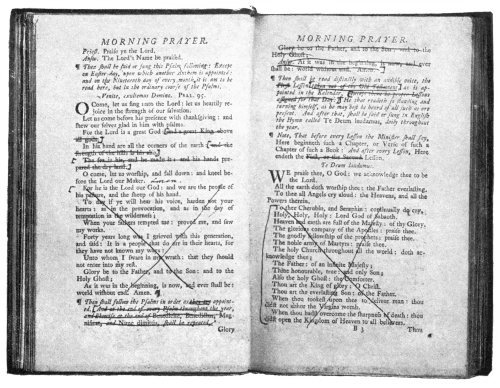 MORNING PRAYER.
Priest. Praise ye the Lord.
Answ. The Lord's Name be praised.
¶ Then shall be said or sung this Psalm following: Except on Easter day, upon which another Anthem is appointed: and on the Nineteenth day of every month, it is not to be read here, but in the ordinary course of the Psalms.
Venite, exultemus Domino. PSAL. 95.
O Come, let us sing unto the Lord: let us heartily rejoice in the strength of our salvation.
Let us come before his presence with thanksgiving: and shew our selves glad in him with psalms.
For the Lord is a great God: and a great King above all gods.
In his hand are all the corners of the earth: and the strength of the hills is his also.
The sea is his, and he made it: and his hands prepared the dry land.
O come, let us worship, and fall down: and kneel before the Lord our Maker.
For he is the Lord our God: and we are the people of his pasture, and the sheep of his hand.
To day if ye will hear his voice, harden not your hearts: as in the provocation, and as in the day of temptation in the wilderness;
When your fathers tempted me: proved me, and saw my works.
Forty years long was I grieved with this generation, and said: It is a people that do err in their hearts, for they have not known my ways:
Unto whom I sware in my wrath: that they should not enter into my rest.
Glory be to the Father, and to the Son: and to the Holy Ghost;
As it was in the beginning, is now, and ever shall be: world without end. Amen.
¶ Then shall follow the Psalms in order as they are appointed. And at the end of every Psalm throughout the year, and likewise at the end of Benedicite, Benedictus, Magnificat, and Nunc dimittis, shall be repeated,
Glory
MORNING PRAYER.
Glory be to the Father, and to the Son: and to the Holy Ghost;
Answ. As it was in the beginning, is now, and ever shall be: world without end. Amen.
¶ Then shall be read distinctly with an audible voice, the First Lesson, taken out of the Old Testament, as is appointed in the Kalender,
assigned for that Day: He that readeth so standing and turning himself, as he may best be heard of all such as are present. And after that, shall be said or sung in English the Hymn called Te Deum laudamus, daily throughout the year.
¶ Note, That before every Lesson the Minister shall say, Here beginneth such a Chapter, or Verse of such a Chapter of such a Book: And after every Lesson, Here endeth the First, or the Second Lesson.
Te Deum laudamus.
WE praise thee, O God: we acknowledge thee to be the Lord.
All the earth doth worship thee: the Father everlasting.
To thee all Angels cry aloud: the Heavens, and all the Powers therein.
To thee Cherubin, and Seraphin: continually do cry,
Holy, Holy, Holy: Lord God of Sabaoth.
Heaven and earth are full of the Majesty: of thy Glory.
The glorious company of the Apostles: praise thee.
The goodly fellowship of the prophets: praise thee.
The noble army of Martyrs: praise thee.
The holy Church throughout all the world: doth acknowledge thee;
The Father: of an infinite Majesty;
Thine honourable, true: and only Son;
Also the holy Ghost: the Comforter.
Thou art the King of glory: O Christ.
Thou art the everlasting Son: of the Father.
When thou tookest upon thee to deliver man: thou didst not abhor the Virgins womb.
When thou hadst overcome the sharpness of death: thou didst open the Kingdom of Heaven to all believers.
B 3
Thou